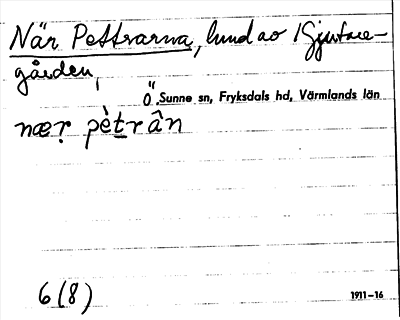 När Pettrarna, lund ao Gjutare-
gården,
Ö. Sunne sn, Fryksdals hd, Värmlands län
næṛ pètrân
6 (8)
1911-16